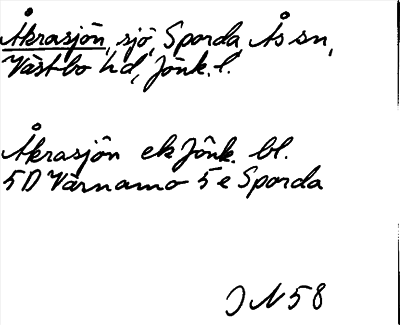 Åkrasjön, sjö, Sporda, Ås sn,
Västbo hd, Jönk. l.
Åkrasjön ek Jönk. bl.
5D Värnamo 5e Sporda
JN 58